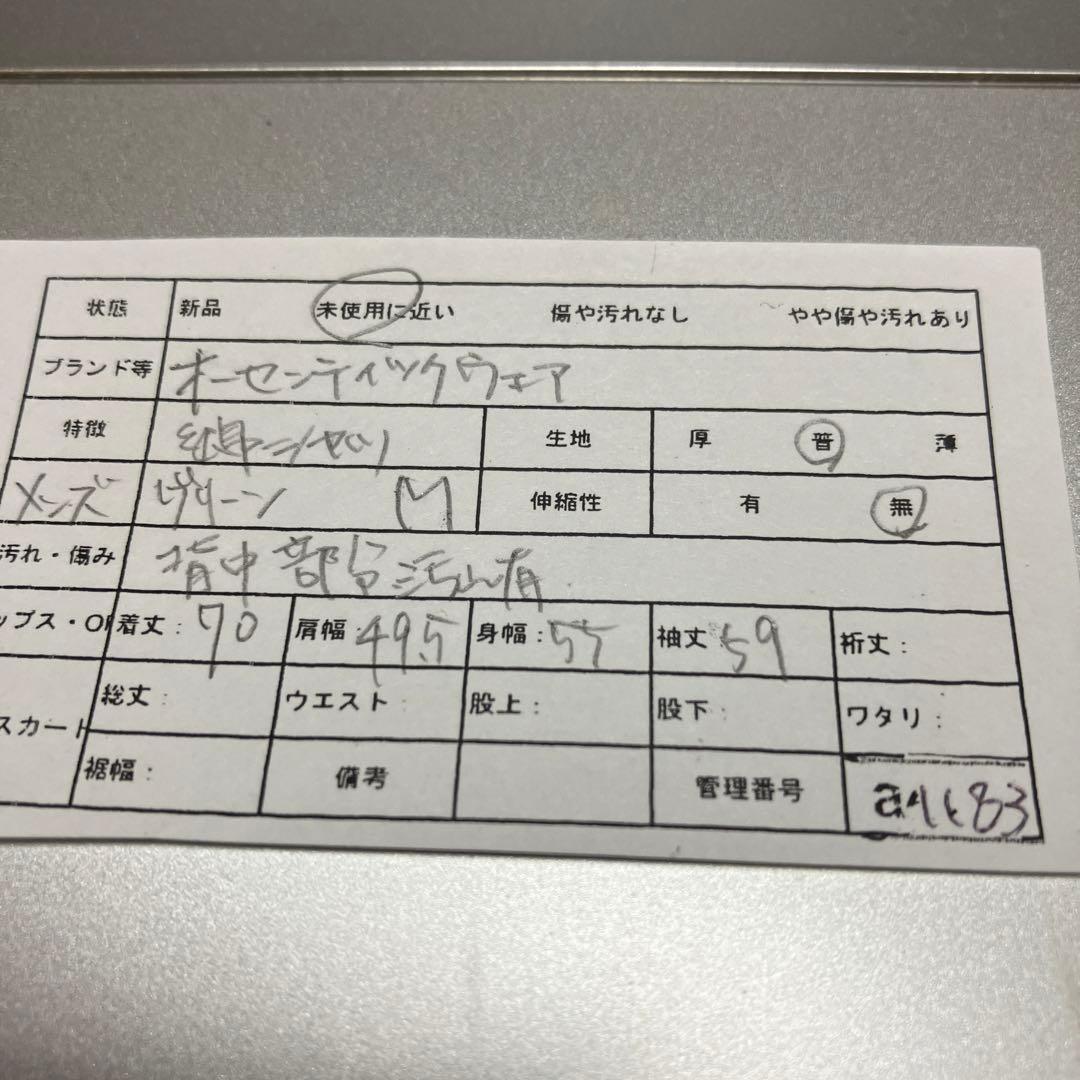 状態 新品 未使用に近い 傷や汚れなし やや傷や汚れあり
ブランド等 オーセンティックウェア
特徴 生地 厚 普 薄
メンズ グリーン M 伸縮性 有 無
汚れ・傷み 背中部分汚れ有
ップス・OP 着丈: 70 肩幅: 49.5 身幅: 55 袖丈: 59 裄丈:
スカート 総丈: ウエスト: 股上: 股下: ワタリ:
裾幅: 備考 管理番号